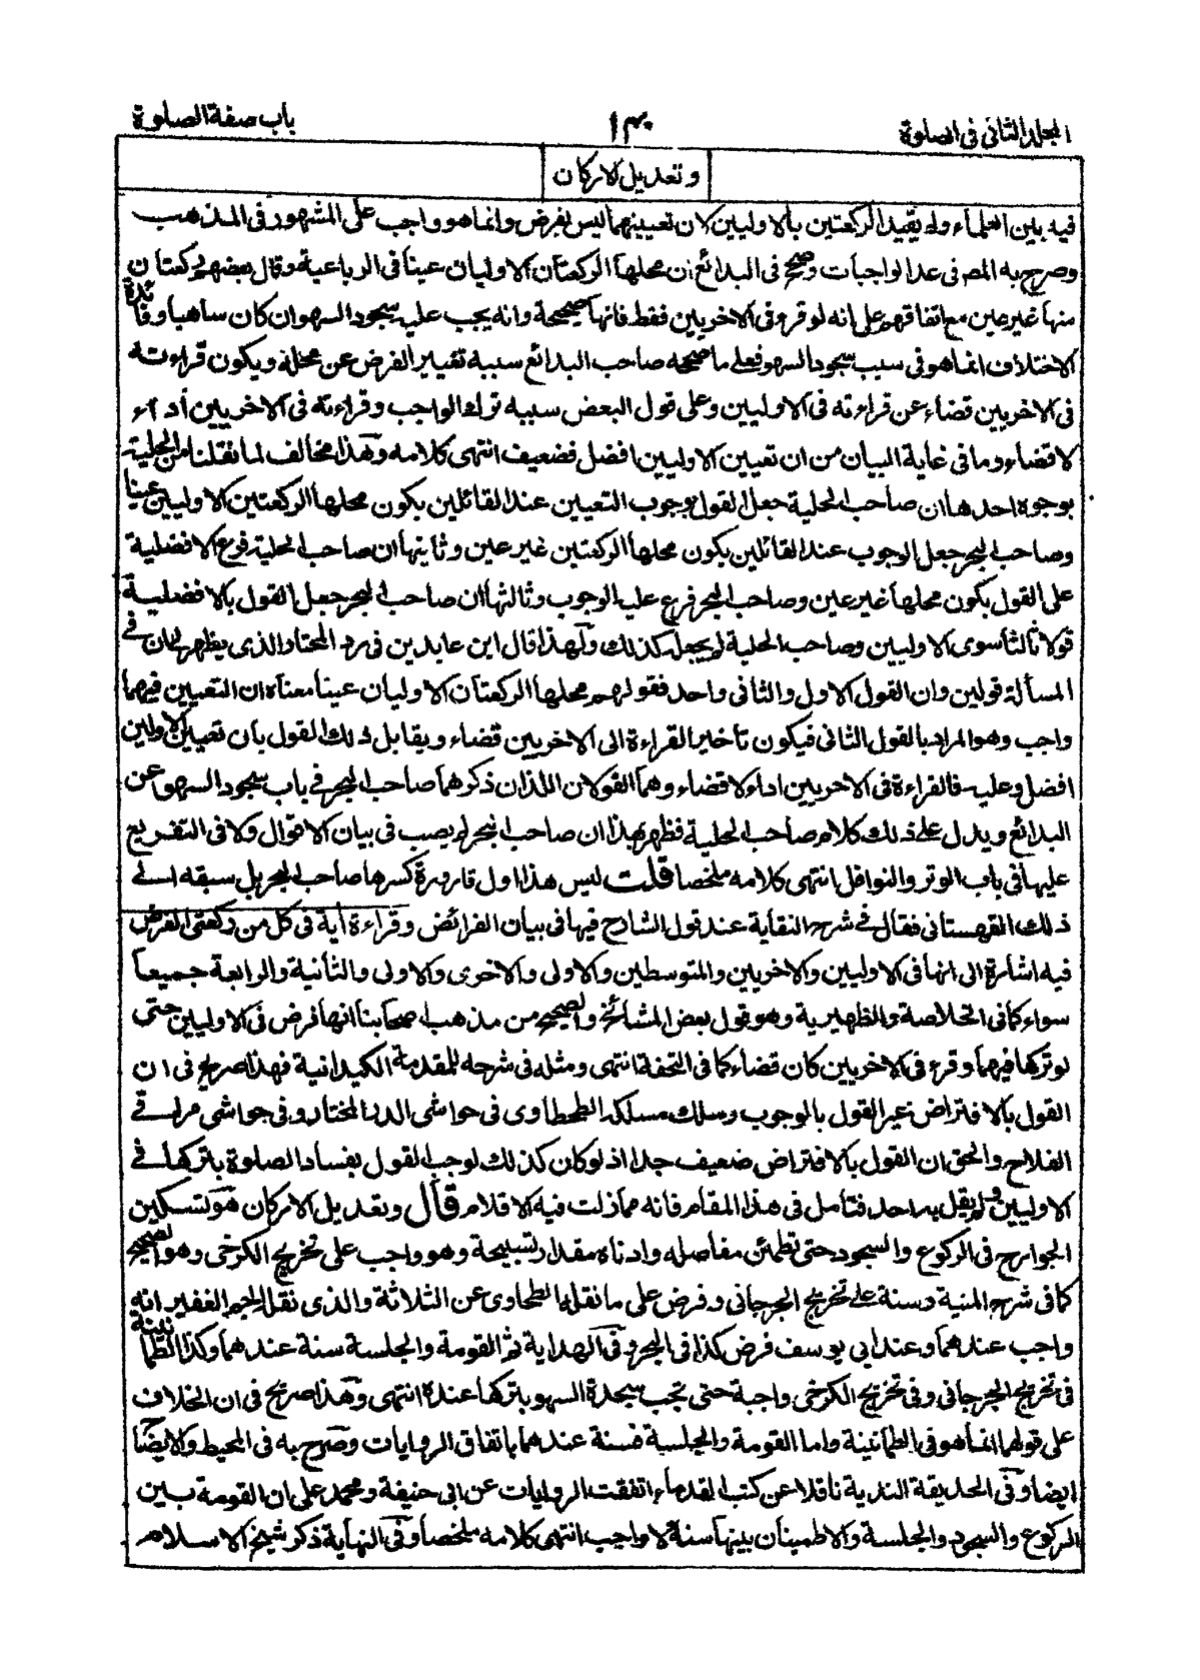 المجلد الثاني في الصلوة
۱۳۰
باب صفة الصلوة
وتعديل الاركان
فيه بين العلماء ولم يقيد الركعتين بالاوليين لان تعيينهما ليس بفرض وانما هو واجب على المشهور في المذهب
وصرح به المصـ في عد الواجبات وصحح في البدائع ان محلها الركعتان الاوليان عينا في الرباعية وقال بعضهم ركعتان
منها غير عين مع اتفاقهم على انه لو قرء في الاخريين فقط فانها صحيحة وانه يجب عليه سجود السهو ان كان ساهيا وفائدة
الاختلاف انما هو في سبب سجود السهو فعلى ما صححه صاحب البدائع سببه تغيير الفرض عن محله ويكون قراءته
في الاخريين قضاء عن قراءته في الاوليين وعلى قول البعض سببه ترك الواجب وقراءته في الاخريين أداء
لا قضاء وما في غاية البيان من ان تعيين الاوليين افضل فضعيف انتهى كلامه وهذا مخالف لما نقلنا من الحلية
بوجوه احدها ان صاحب الحلية جعل القول بوجوب التعيين عند القائلين بكون محلها الركعتين الاوليين عينا
وصاحب البحر جعل الوجوب عند القائلين بكون محلها الركعتين غير عين وثانيها ان صاحب الحلية فرع الافضلية
على القول بكون محلها غير عين وصاحب البحر فرع عليه الوجوب وثالثها ان صاحب البحر جعل القول بالافضلية
قولا ثالثا سوى الاوليين وصاحب الحلية لم يجعل كذلك ولهذا قال ابن عابدين في رد المحتار الذي يظهر لي ان في
المسألة قولين وان القول الاول والثاني واحد فقولهم محلها الركعتان الاوليان عينا معناه ان التعيين فيهما
واجب وهو المراد بالقول الثاني فيكون تاخير القراءة الى الاخريين قضاء ويقابل ذلك القول بان تعيين الاولين
افضل وعليه فالقراءة في الاخريين اداء لا قضاء وهما القولان اللذان ذكرهما صاحب البحر في باب سجود السهو عن
البدائع ويدل على ذلك كلام صاحب الحلية فظهر بهذا ان صاحب البحر لم يصب في بيان الاقوال ولا في التفريع
عليها في باب الوتر والنوافل انتهى كلامه ملخصا قلت ليس هذا اول قارورة كسرها صاحب البحر بل سبقه الى
ذلك القهستاني فقال في شرح النقاية عند قول الشارح فيها في بيان الفرائض وقراءة أية في كل من ركعتى الفرض
فيه اشارة الى انها في الاوليين والاخريين والمتوسطين والاولى والاخرى والاولى والثانية والرابعة جميعا
سواء كما في الخلاصة والظهيرية وهو قول بعض المشائخ والصحيح من مذهب اصحابنا انها فرض في الاوليين حتى
لو تركها فيهما وقرء في الاخريين كان قضاء كما في التحفة انتهى ومثله في شرحه للمقدمة الكيدانية فهذا صريح في ان
القول بالافتراض غير القول بالوجوب وسلك مسلكه الطحطاوى في حواشى الدر المختار وفي حواشى مراقي
الفلاح والحق ان القول بالافتراض ضعيف جدا اذ لو كان كذلك لوجب القول بفساد الصلوة بتركها في
الاوليين ولم يقل به احد فتأمل في هذا المقام فانه مما زلت فيه الاقلام قال وتعديل الاركان هو تسكين
الجوارح في الركوع والسجود حتى تطمئن مفاصله وادناه مقدار تسبيحة وهو واجب على تخريج الكرخي وهو الصحيح
كما في شرح المنية وسنة على تخريج الجرجاني وفرض على ما نقله الطحاوى عن الثلاثة والذي نقله الجم الغفير انه
واجب عندهما وعند ابي يوسف فرض كذا في البحر وفي الهداية ثم القومة والجلسة سنة عندهما وكذا الطمانينة
في تخريج الجرجاني وفي تخريج الكرخي واجبة حتى تجب سجدة السهو بتركها عنده انتهى وهذا صريح في ان الخلاف
على قولهما انما هو في الطمانينة واما القومة والجلسة فسنة عندهما باتفاق الروايات وصرح به في المحيط والايضاح
ايضا وفي الحديقة الندية ناقلا عن كتب القدماء اتفقت الروايات عن ابي حنيفة ومحمد على ان القومة بين
الركوع والسجود والجلسة والاطمينان بينها سنة لا واجب انتهى كلامه ملخصا وفي النهاية ذكر شيخ الاسلام